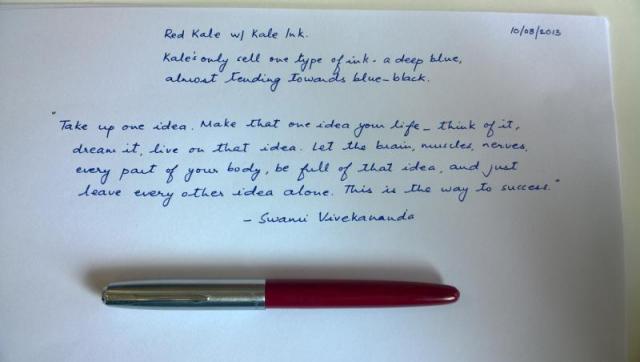 Red Kale w/ Kale Ink.
10/08/2013
Kale's only sell one type of ink - a deep blue,
almost tending towards blue-black.
"Take up one idea. Make that one idea your life - think of it,
dream it, live on that idea. Let the brain, muscles, nerves,
every part of your body, be full of that idea, and just
leave every other idea alone. This is the way to success."
- Swami Vivekananda